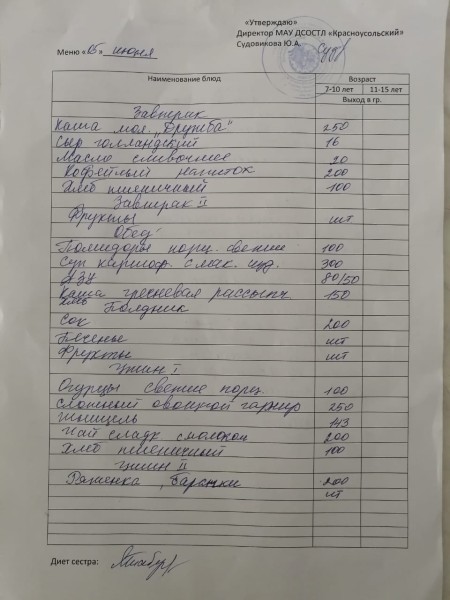 «Утверждаю»
Директор МАУ ДСОСТЛ «Красноусольский»
Судовикова Ю.А.
Меню «05» июня
Наименование блюд Возраст
7-10 лет 11-15 лет
Выход в гр.
Завтрик
Каша мол. „Дружба" 250
Сыр голландский 16
Масло сливочное 20
Кофейный напиток 200
Хлеб пшеничный 100
Завтрак II
Фрукты шт
Обед
Помидоры порц. свежие 100
Суп картоф. с мак. изд. 300
Азу 80/50
Каша гречневая рассыпч 150
хлеб Полдник
Сок 200
Печенье шт
Фрукты шт
Ужин I
Огурцы свежие порц. 100
Сложный овощной гарнир 250
Шницель 143
Чай сладк с молоком 200
Хлеб пшеничный 100
Ужин II
Ряженка, баранки 200
шт
Диет сестра: